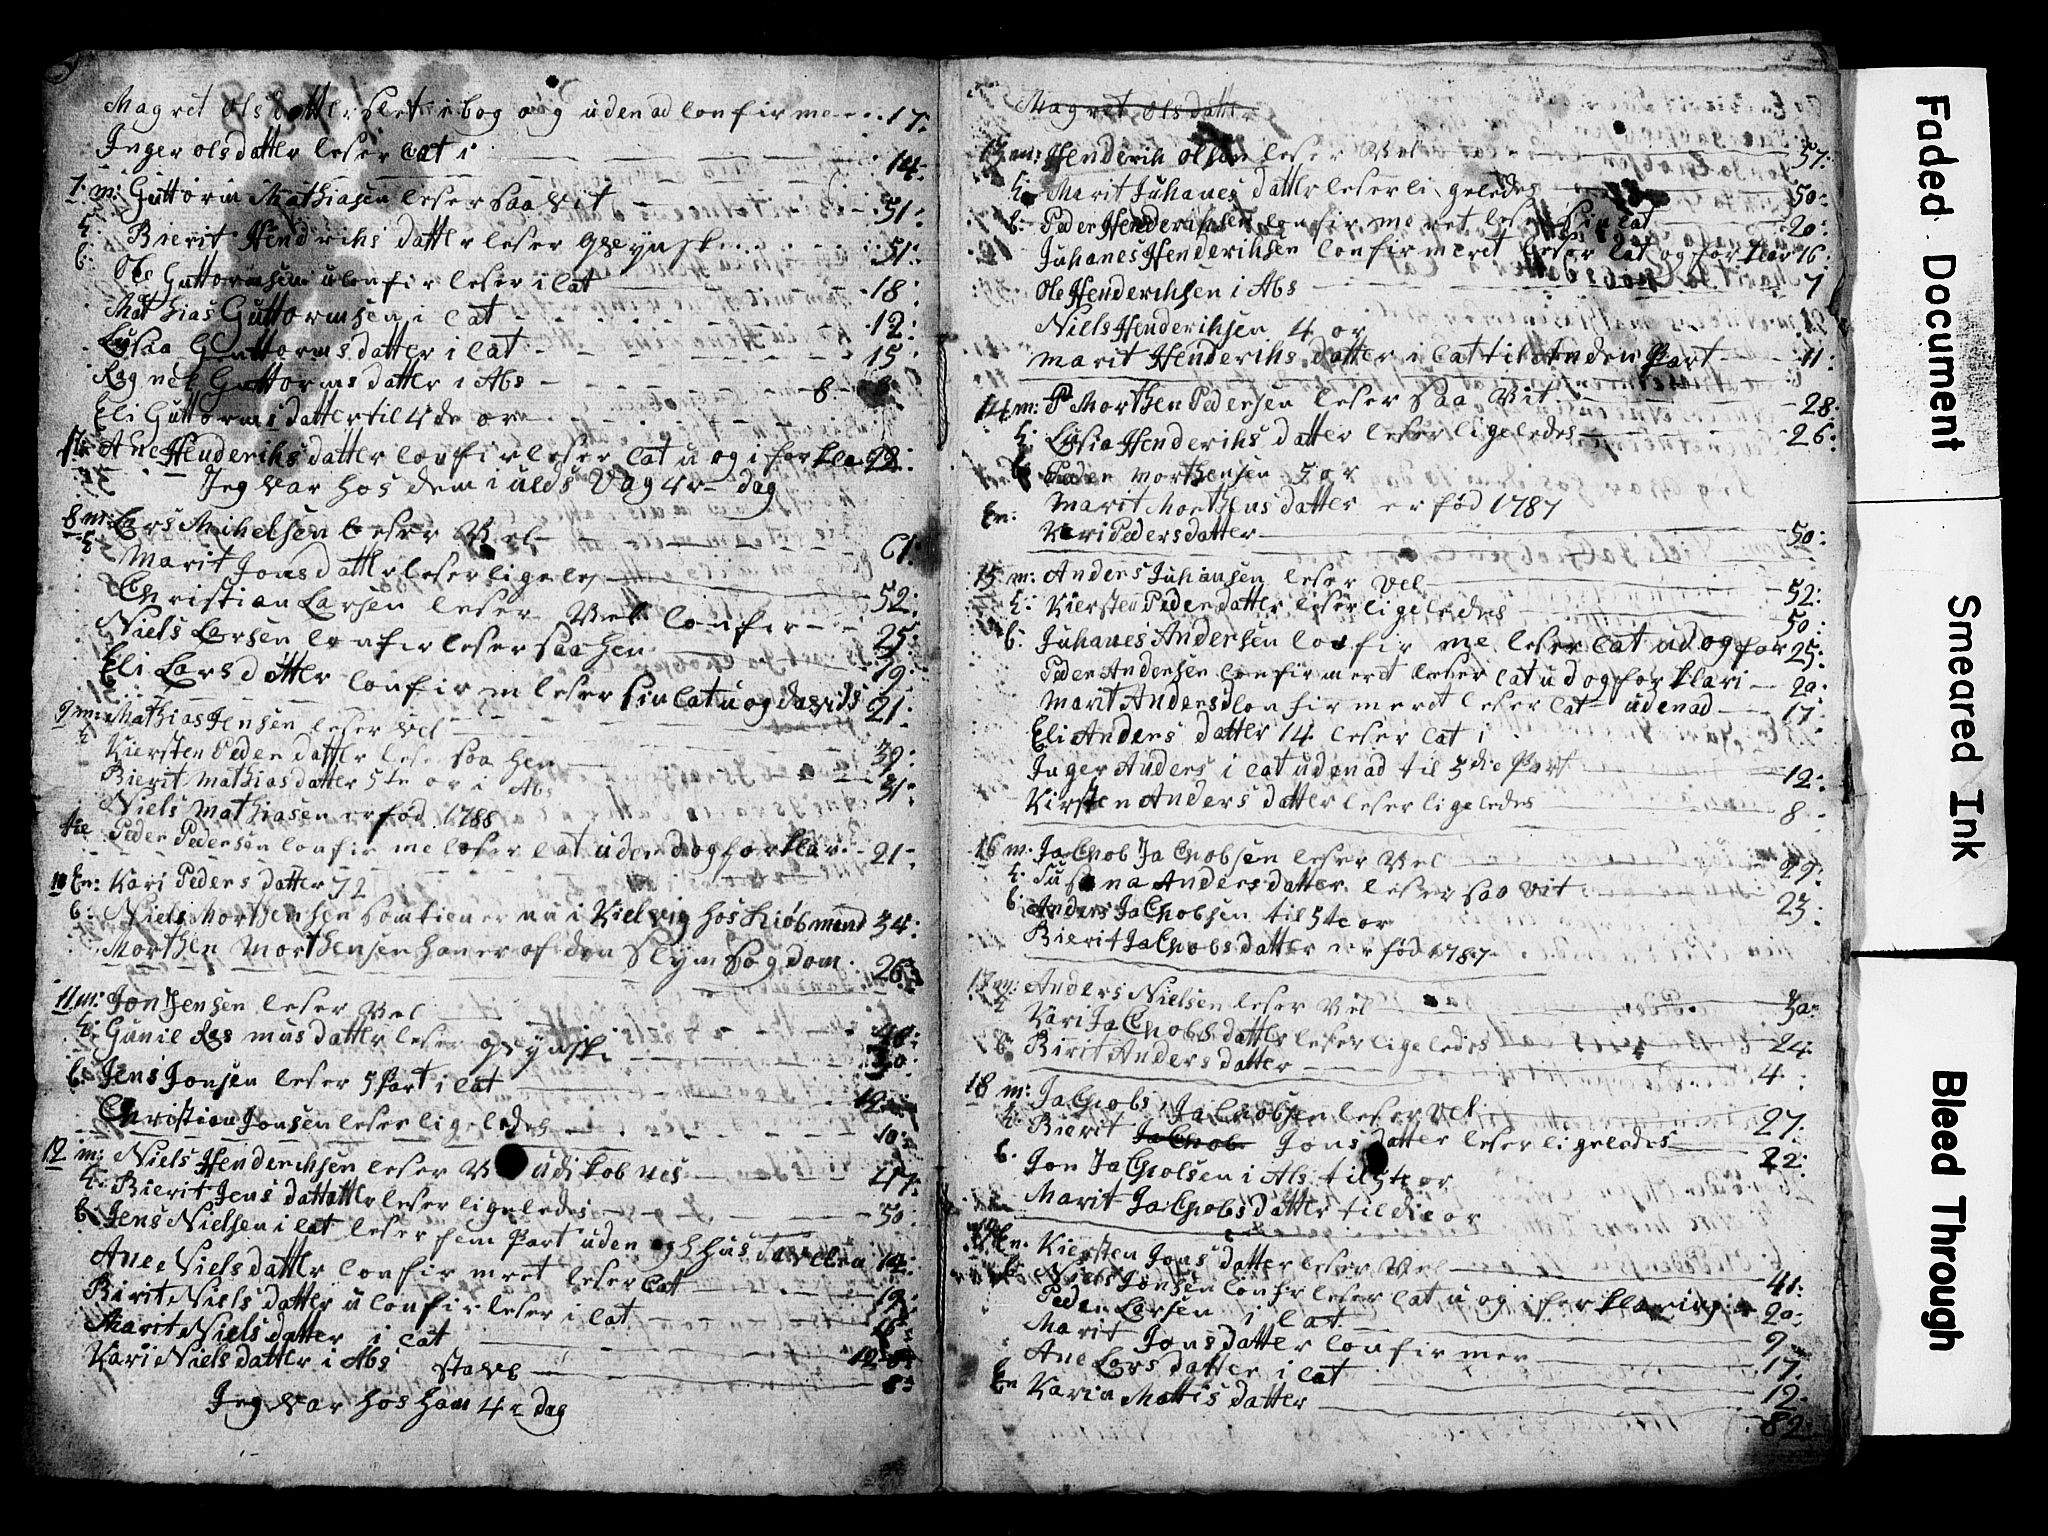 Magret Olsdatter i bog og udenad Confirme 17
Inger Olsdatter leser Cat i 14
7 m: Guttorm Mathiasen leser saa vit 51:
k: Bierit Hendrihs datter leser 51:
b: Ole Guttormsen uConfir leser i Cat 18
Mathias Guttormsen i Cat 12:
Guttorms datter i Cat 15
Guttorms datter i Abs 8
Eli Guttorms datter til 4de or
Ane Henderihs datter Confir leser Cat u og i forklar 22:
Jeg var hos dem i Vag 4r dag
8 m: Lars leser Vel 61:
k Marit Jons datter leser ligeles 52:
Christian Larsen leser Vel Confir 25:
Niels Larsen Confir leser saa hen 19:
Eli Lars datter Confirm leser sin Cat u og davids 21:
9 m: Mathias Jensen leser vel 39:
k Kiersten Peder datter leser saa hen 31:
Bierit Mathias datter 5te or i Abs
Niels Mathiasen er fød 1788
tie Peder Pedersen Confirme leser Cat uden d og forklar 21
10 En: Kari Peders datter 72
b: Niels Morthensen som tiener nu i Kielvig hos Kiøbmend 34:
Morthen Morthensen han er af den dom. 26
11 m: Jon Jensen leser Vel 40:
k: Gunil Rasmus datter leser 30:
b: Jens Jonsen leser 5 Part i Cat 12
Christian Jonsen leser ligeledes 10:
12 m: Niels Henderihsen leser V 47:
k: Bierit Jens dattatter leser ligeledes 50:
b: Jens Nielsen i Cat leser fem Part uden og hustavelen 14:
Ane Nielsdatter Confirmret leser Cat 19:
Birit Niels datter uConfir leser i Cat 16
Marit Niels datter i Cat 12
Kari Niels datter i Abs stave 8
Jeg var hos ham 4r dag
Magret Olsdatter
13 m: Henderih Olsen leser Vel 57:
k: Marit Juhanes datter leser ligeledes 50:
b: Peder Henderihsen Confirmeret leser sin Cat 20:
Juhanes Henderihsen Confirmeret leser Cat og forklar 16
Ole Henderihsen i Abs 7
Niels Henderihsen 4 or
Marit Henderihs datter i Cat til Anden Part 11:
14 m: P Morthen Pedersen leser saa Vit 28:
k: Henderihs datter leser ligeledes 26:
b: Peder Morthensen 5 or
Marit Morthens datter er fød 1787
En: Kari Pedersdatter 50:
15 m: Anders Juhansen leser vel 52:
k: Kiersten Peder datter leser ligeledes 50:
b: Juhanes Andersen Confirme leser Cat ud og for 25:
Peder Andersen Confirmeret leser Cat ud og forklari 20:
Marit Andersd Confirmeret leser Cat udenad 17
Eli Anders datter 14 leser Cat i
Inger Anders i Cat udenad til 3die Part 12:
Kirsten Anders datter leser ligeledes 8
16 m: JaChob JaChobsen leser Vel 29:
k: Susana Anders datter leser saa Vit 23:
b: Anders JaChobsen til 5te or
Bierit JaChobs datter er fød 1787
17 m: Anders Nielsen leser Vel 30:
k Kari JaChobs datter leser ligeledes 24
b: Birit Anders datter 4
18 m: JaChobs JaChobsen leser vel 27:
k: Bierit JaChob Jons datter leser ligeledes 22:
b: Jon JaChobsen i Abs til 5te or
Marit JaChobs datter til die or
19 En: Kiersten Jons datter leser Vel 41:
b: Niels Jonsen Confr leser Cat u og i forklaringer 20:
Peder Larsen i Cat 9
Marit Jonsdatter Confirmer 17
Ane Lars datter i Cat 12:
En Karin Mattis datter 82:
Faded Document
Smeared Ink
Bleed Through